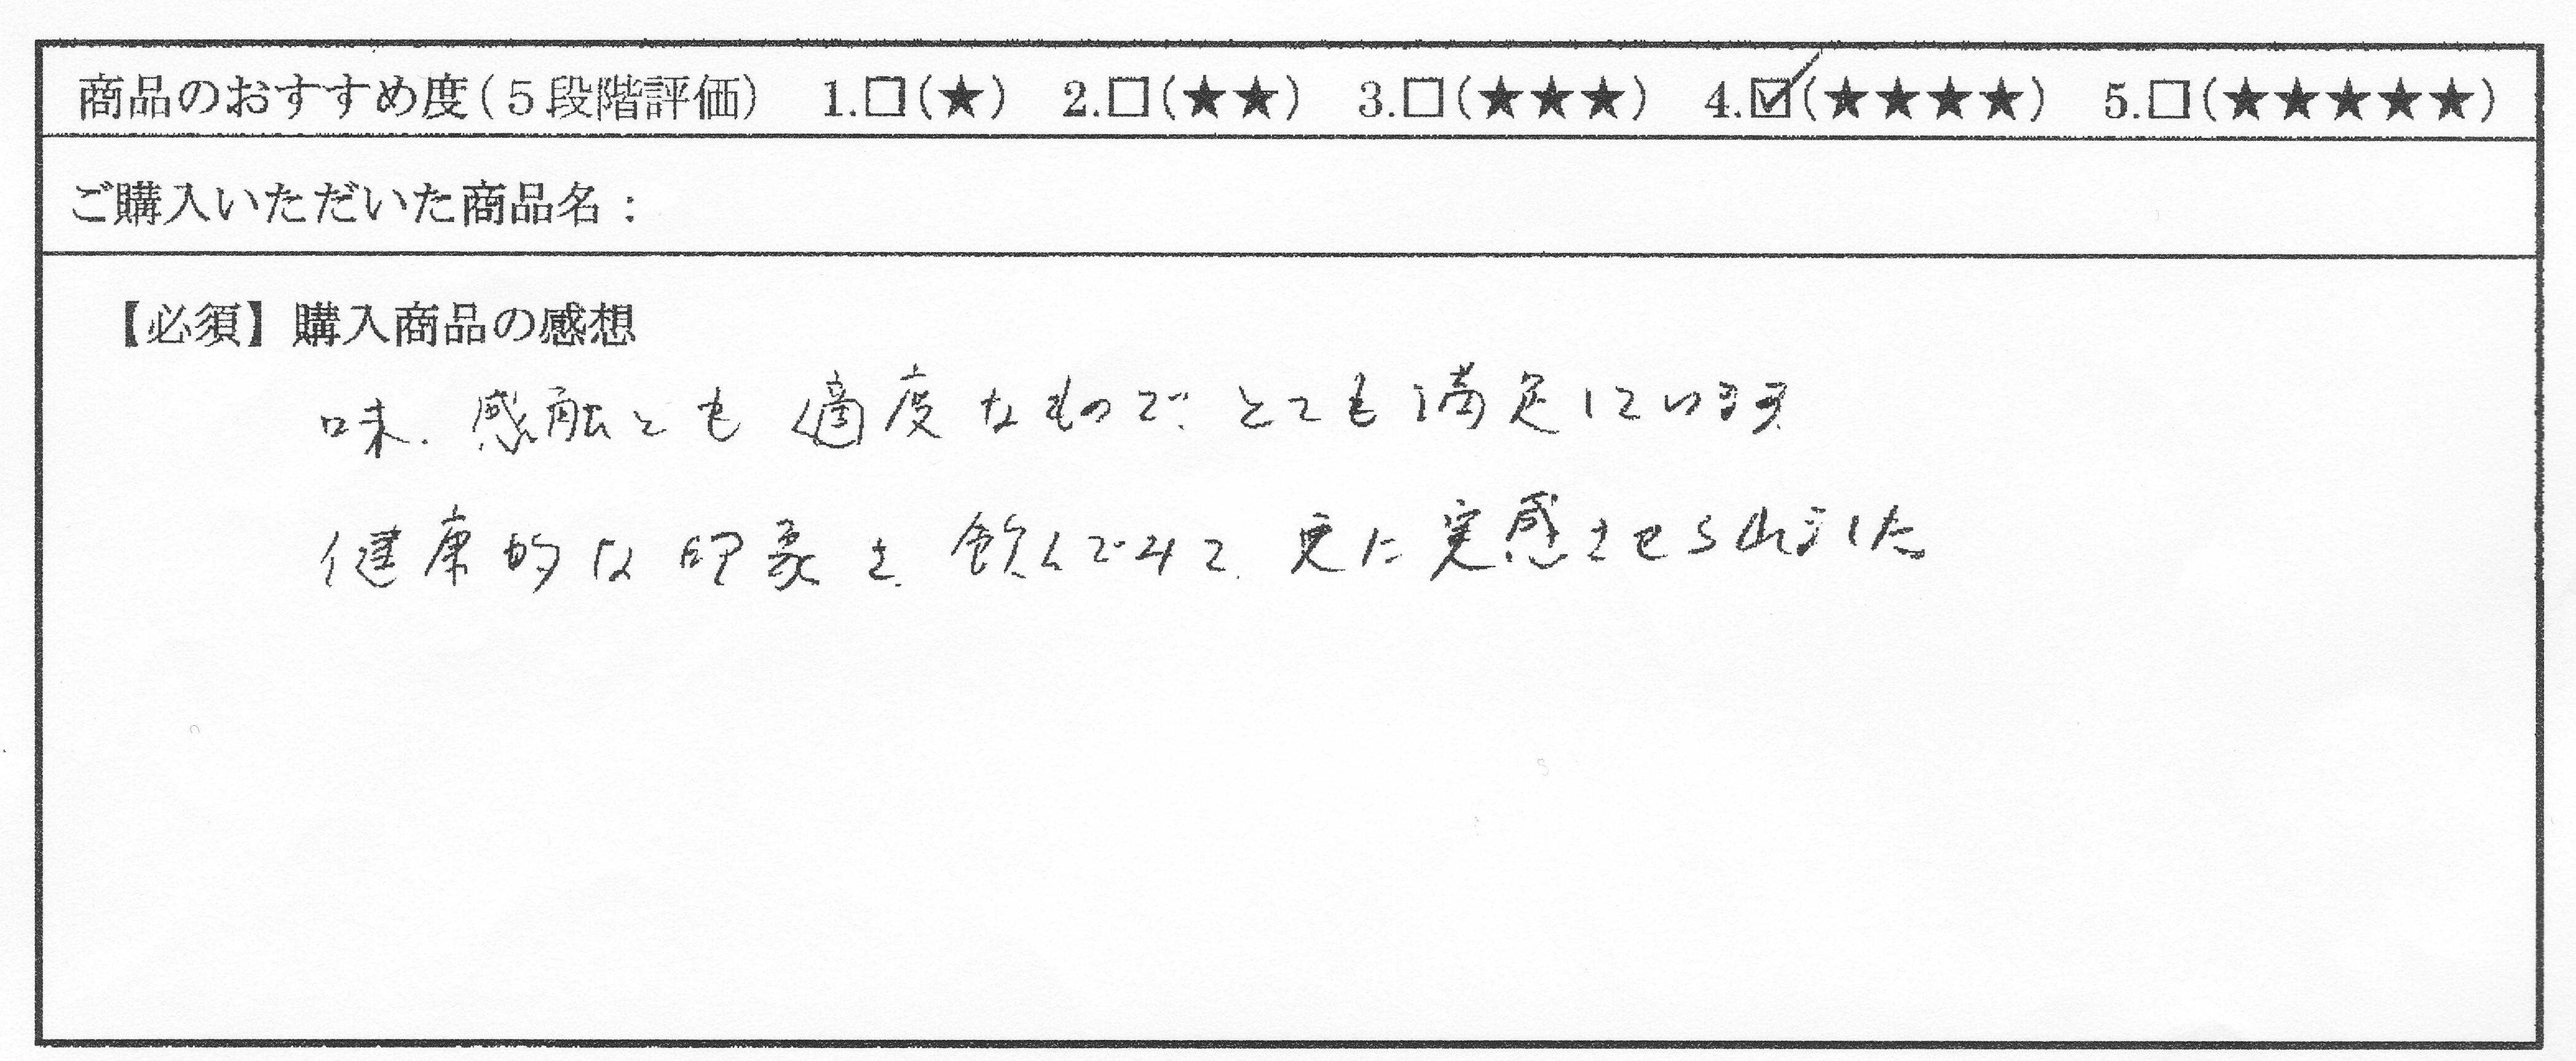 商品のおすすめ度(５段階評価) 1.□(★) 2.□(★★) 3.□(★★★) 4.☑(★★★★) 5.□(★★★★★)
ご購入いただいた商品名：
【必須】購入商品の感想
味、感触とも適度なもので、とても満足しています
健康的な印象を、飲んでみて、更に実感させられました